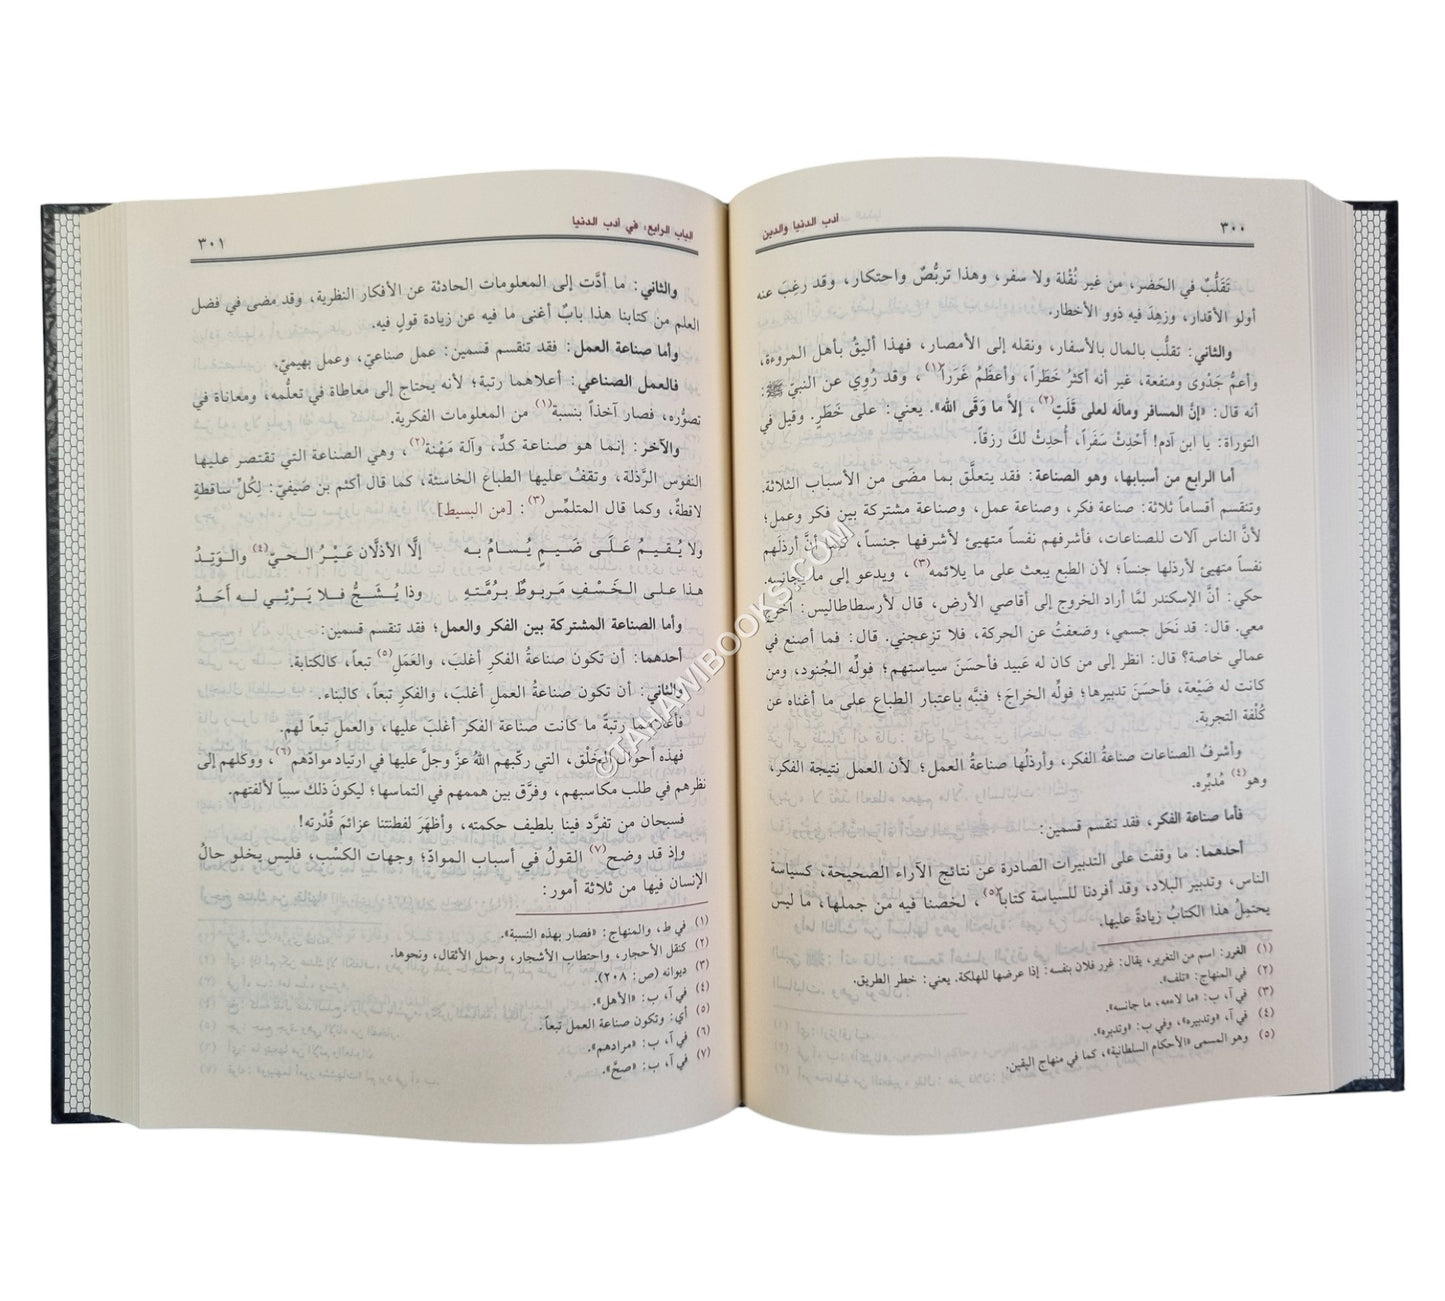 ٣٠٠
أدب الدنيا والدين
تَقَلُّبٌ في الحَضَر، من غير نُقْلة ولا سفر، وهذا تربُّصٌ واحتكار، وقد رغِبَ عنه
أولو الأقدار، وزهِدَ فيه ذوو الأخطار.
والثاني: تقلُّب بالمال بالأسفار، ونقله إلى الأمصار، فهذا أليقُ بأهل المروءة،
وأعمُّ جَدْوى ومنفعة، غير أنه أكثرُ خَطَراً، وأعظَمُ غَرَراً(١)، وقد رُوِي عن النبيّ ﷺ:
أنه قال: «إنَّ المسافر ومالَه لعلى قَلَتٍ(٢)، إلاَّ ما وَقَى الله». يعني: على خَطَرٍ. وقيل في
التوراة: يا ابن آدم! أَحْدِثْ سَفَراً، أُحدِثْ لكَ رزقاً.
أما الرابع من أسبابها، وهو الصناعة: فقد يتعلَّق بما مضَى من الأسباب الثلاثة.
وتنقسم أقساماً ثلاثة: صناعة فكر، وصناعة عمل، وصناعة مشتركة بين فكر وعمل؛
لأنَّ الناس آلات للصناعات، فأشرفهم نفساً متهيئ لأشرفها جنساً، كما أنَّ أرذلَهم
نفساً متهيئ لأرذلها جنساً؛ لأن الطبع يبعث على ما يلائمه(٣)، ويدعو إلى ما يجانسه.
حكي: أنَّ الإسكندر لمَّا أراد الخروج إلى أقاصي الأرض، قال لأرسطاطاليس: أخرج
معي. قال: قد نَحَل جسمي، وضعفتُ عن الحركة، فلا تزعجني. قال: فما أصنع في
عمالي خاصة؟ قال: انظر إلى من كان له عَبيد فأحسَنَ سياستهم؛ فولِّه الجُنود، ومن
كانت له ضَيْعة، فأحسَنَ تدبيرها؛ فولِّه الخراجَ؛ فنبَّه باعتبار الطباع على ما أغناه عن
كُلْفة التجربة.
وأشرفُ الصناعات صناعةُ الفكر، وأرذلُها صناعةُ العمل؛ لأن العمل نتيجة الفكر،
وهو(٤) مُدبِّره.
فأما صناعة الفكر، فقد تنقسم قسمين:
أحدهما: ما وقفت على التدبيرات الصادرة عن نتائج الآراء الصحيحة، كسياسة
الناس، وتدبير البلاد، وقد أفردنا للسياسة كتاباً(٥)، لخصنا فيه من جملها، ما ليس
يحتمِلُ هذا الكتابُ زيادةً عليها.
(١) الغرر: اسم من التغرير، يقال: غرر فلان بنفسه: إذا عرضها للهلكة. يعني: خطر الطريق.
(٢) في المنهاج: «تلف».
(٣) في آ، ب: «ما لاءمه، ما جانسه».
(٤) في آ، «وتدبيره»، وفي ب: «وتدبره».
(٥) وهو المسمى «الأحكام السلطانية»، كما في منهاج اليقين.
الباب الرابع: في أدب الدنيا
٣٠١
والثاني: ما أدَّت إلى المعلومات الحادثة عن الأفكار النظرية، وقد مضى في فضل
العلم من كتابنا هذا بابٌ أغنى ما فيه عن زيادة قولٍ فيه.
وأما صناعة العمل: فقد تنقسم قسمين: عمل صناعيّ، وعمل بهيميّ.
فالعمل الصناعي: أعلاهما رتبة؛ لأنه يحتاج إلى معاطاة في تعلُّمه، ومعاناة في
تصوُّره، فصار آخذاً بنسبة(١) من المعلومات الفكرية.
والآخر: إنما هو صناعة كدٍّ، وآلة مَهْنة(٢)، وهي الصناعة التي تقتصر عليها
النفوس الرَّذلة، وتقفُ عليها الطباع الخاسئة، كما قال أكثم بن صَيفيّ: لِكُلِّ ساقطةٍ
لاقطةٌ، وكما قال المتلمِّس(٣): [من البسيط]
ولا يُقيمُ عَلَى ضَيمٍ يُسامُ به إلَّا الأذلَّان عَيْرُ الحيِّ(٤) والوَتِدُ
هذا على الخَسْفِ مَربوطٌ برُمَّتِه وذا يُشَجُّ فلا يَرْثِي له أَحَدُ
وأما الصناعة المشتركة بين الفكر والعمل؛ فقد تنقسم قسمين:
أحدهما: أن تكون صناعةُ الفكرِ أغلبَ، والعَمَلِ(٥) تبعاً، كالكتابة.
والثاني: أن تكون صناعةُ العملِ أغلبَ، والفكرِ تبعاً، كالبناء.
فأعلاهما رتبةً ما كانت صناعة الفكر أغلبَ عليها، والعمل تبعاً لهم.
فهذه أحوال الخَلْق، التي ركَّبهم اللهُ عزَّ وجلَّ عليها في ارتياد موادِّهم(٦)، ووكلهم إلى
نظرهم في طلب مكاسبهم، وفرَّق بين هممهم في التماسها؛ ليكونَ ذلك سبباً لألفتهم.
فسبحان من تفرَّد فينا بلطيف حكمته، وأظهَرَ لفطنتنا عزائمَ قُدْرته!
وإذ قد وضح(٧) القولُ في أسباب الموادِّ؛ وجهات الكسْب، فليس يخلو حالُ
الإنسان فيها من ثلاثة أمور:
(١) في ط، والمنهاج: «فصار بهذه النسبة».
(٢) كنقل الأحجار، واحتطاب الأشجار، وحمل الأثقال، ونحوها.
(٣) ديوانه (ص: ٢٠٨).
(٤) في آ، ب: «الأهل».
(٥) أي: وتكون صناعة العمل تبعاً.
(٦) في آ، ب: «مرادهم».
(٧) في آ، ب: «صحَّ».
©TAHAMIBOOKS.COM